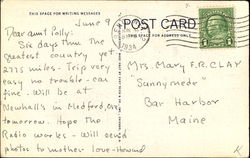 THIS SPACE FOR WRITING MESSAGES
POST CARD
June 9
1934
1
Dear Aunt Polly:
Six days thru the
greatest country yet
2775 miles - Trip very
easy no trouble - car
fine - Will be at
Newhall's in Medford, Ore.,
tomorrow. Hope the
Radio works - Will send
photos to mother - Love - Howard
Mrs. Mary F.R. CLAY
"Sunnymede"
Bar Harbor
Maine